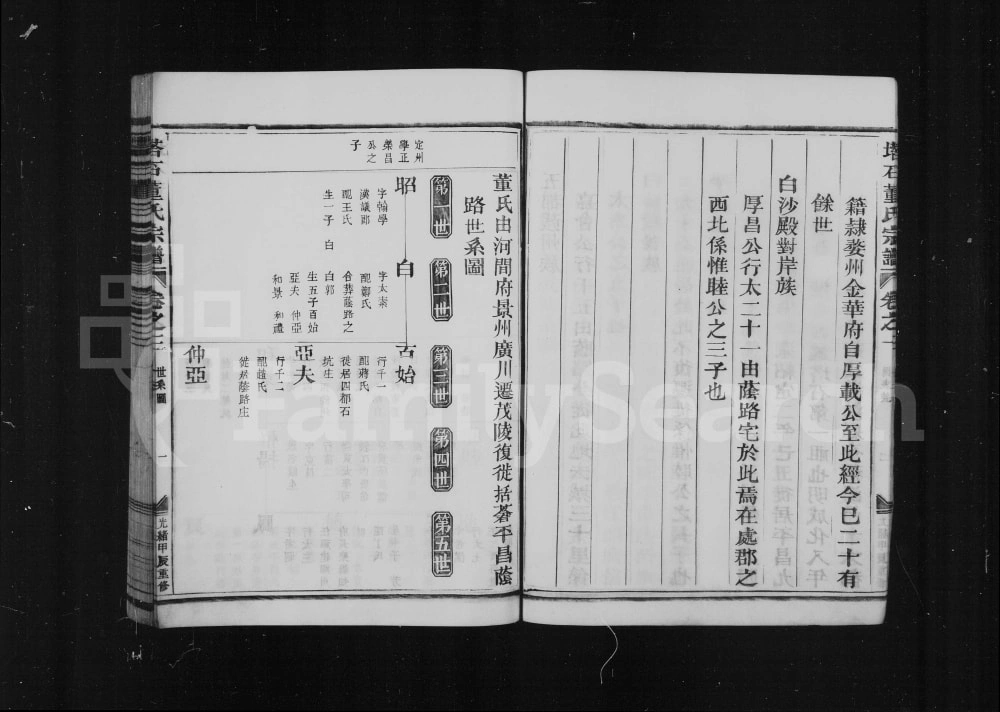 塔石董氏宗譜
卷之一
籍隸婺州金華府自厚載公至此經今巳二十有
餘世
白沙殿對岸族
厚昌公行太二十一由蔭路宅於此焉在處郡之
西北係惟睦公之三子也
董氏由河間府景州廣川遷茂陵復徙括蒼平昌蔭
路世系圖
第一世
第二世
第三世
第四世
第五世
定州
學正
榮昌
公之
子
昭
字翰學
漢議郎
配王氏
生一子 白
白
字太素
配鄭氏
合葬蔭路之
白郭
生五子百始
亞夫 仲亞
和景 和禮
古始
行千一
配蔣氏
徙居四都石
坑庄
亞夫
行千二
配趙氏
徙蔭路庄
仲亞
塔石董氏宗譜
卷之二
世系圖
一
光緒甲辰重修
FamilySearch